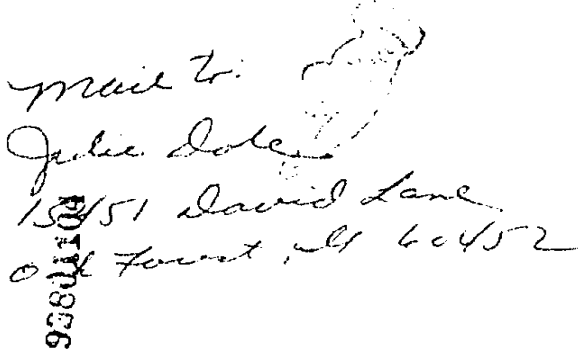 Mail to:
Julie Dole
15451 David Lane
Oak Forest, Il 60452